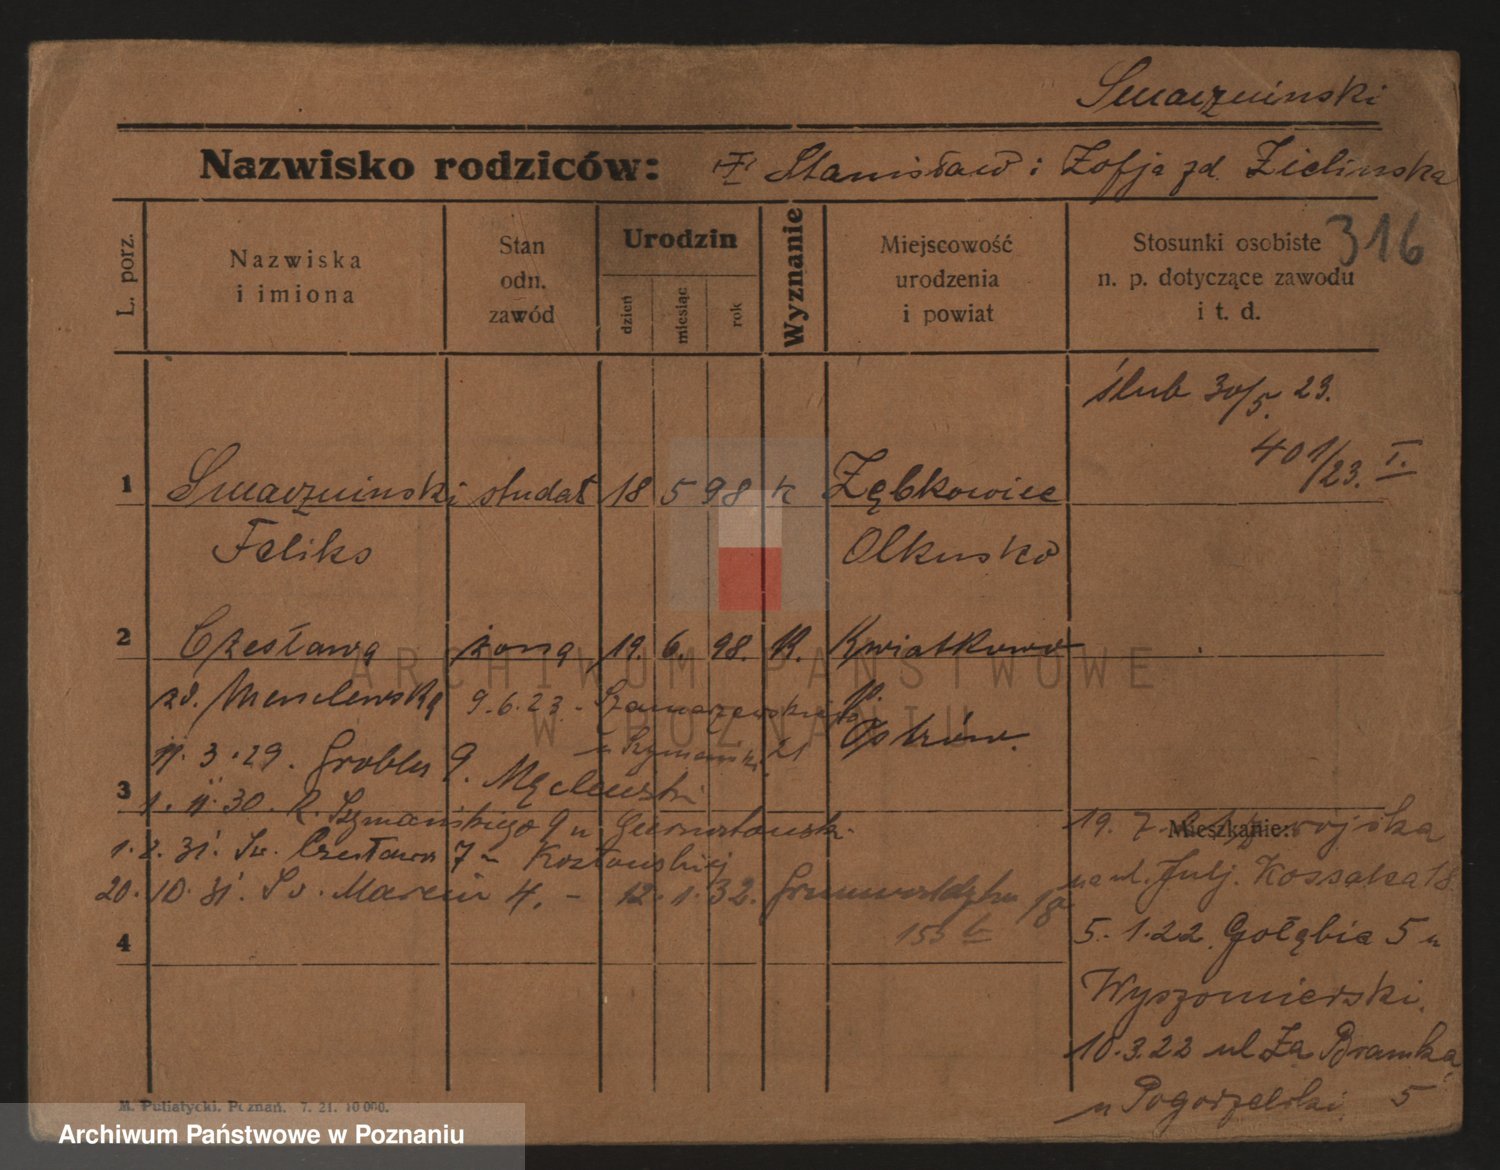 Smaczninski
Nazwisko rodziców: Stanisław i Zofja zd. Zielinska
316
L. porz.
Nazwiska
i imiona
Stan
odn.
zawód
Urodzin
dzień
miesiąc
rok
Wyznanie
Miejscowość
urodzenia
i powiat
Stosunki osobiste
n. p. dotyczące zawodu
i t. d.
ślub 30/5. 23.
401/23. I.
1 Smaczninski studat 18 5 98 k Ząbkowice
Feliks Olkusko
2 Czesława żona 19. 6. 98. K. Kwiatkowo
zd. Menclewska 9.6.23 - p. Ostrów.
11. 3. 29. Grobla 9. Męclewski
u Szymanski 21
3
1. 11. 30. R. Szymańskiego 9 u
1. 8. 31. Św. Czesława 7 u Kozłowskiej
20. 10. 31. Św. Marcin 4. - 12. 1. 32. Grunwaldzka 18a
155
4
Mieszkanie:
19. 7. wojska
na ul. Julj. Kossaka 18.
5. 1. 22. Gołębia 5 u
Wyszomierski.
10. 3. 22 ul Za Bramką
u Pogorzelski 5
M. Putiatycki, Poznań. 7. 21. 10 000.
ARCHIWUM PAŃSTWOWE
W POZNANIU
Archiwum Państwowe w Poznaniu